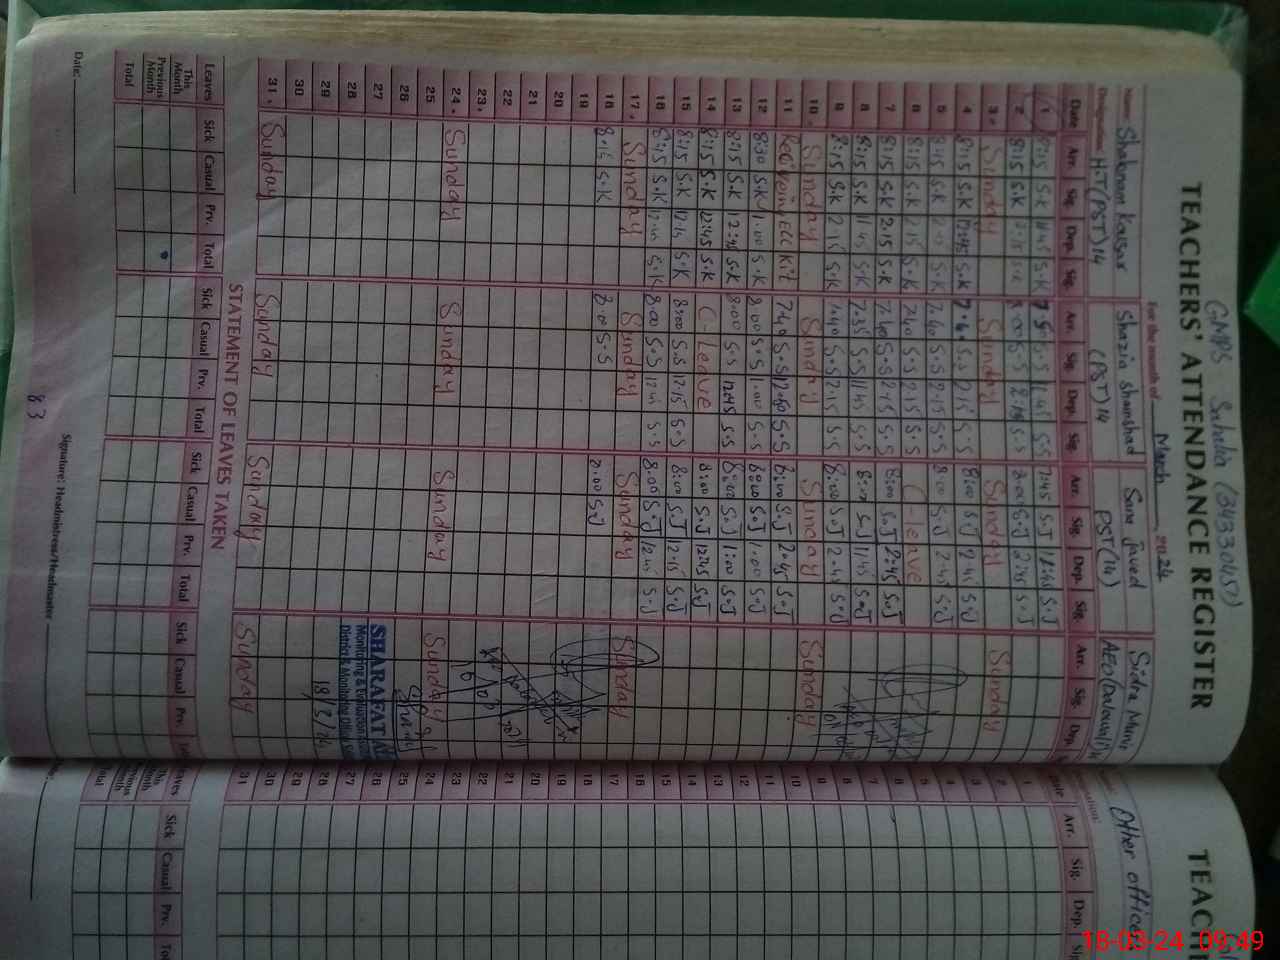 GMPS Sahalia (34330457)
TEACHERS' ATTENDANCE REGISTER
For the month of March 2024
Name: Shabnam Kausar Shazia Shamshad Sana Javed Sidra Munir
Designation: H.T(PST)14 (PST)14 PST(14) AEO
Date Arr. Sig. Dep. Sig. Arr. Sig. Dep. Sig. Arr. Sig. Dep. Sig. Arr. Sig. Dep.
1 8:15 S.K 11:45 S.K S.S 11:45 S.S 7:45 S.J 12:45 S.J
2 8:15 S.K 2:15 S.K 8:00 S.S 2:15 S.S 8:00 S.J 2:45 S.J
3 Sunday Sunday Sunday Sunday
4 8:15 S.K 12:45 S.K S.S 2:15 S.S 8:00 S.J 2:45 S.J
5 8:15 S.K 2:15 S.K 7:40 S.S 2:15 S.S 8:00 S.J 2:45 S.J
6 8:15 S.K 2:15 S.K 7:40 S.S 2:15 S.S C-leave
7 8:15 S.K 2:15 S.K 7:40 S.S 2:45 S.S 8:00 S.J 2:45 S.J
8 8:15 S.K 11:45 S.K 7:35 S.S 11:45 S.S 8:00 S.J 11:45 S.J
9 8:15 S.K 2:15 S.K 7:40 S.S 2:15 S.S 8:00 S.J 2:45 S.J
10 Sunday Sunday Sunday Sunday
11 Recieving ECC Kit 7:40 S.S 12:50 S.S 8:00 S.J 2:45 S.J
12 8:30 S.K 1:00 S.K 8:00 S.S 1:00 S.S 8:00 S.J 1:00 S.J
13 8:15 S.K 12:45 S.K 8:00 S.S 12:45 S.S 8:00 S.J 1:00 S.J
14 8:15 S.K 12:45 S.K C-Leave 8:00 S.J 12:45 S.J
15 8:15 S.K 12:15 S.K 8:00 S.S 12:15 S.S 8:00 S.J 12:15 S.J
16 8:15 S.K 12:45 S.K 8:00 S.S 12:45 S.S 8:00 S.J 12:45 S.J
17 Sunday Sunday Sunday Sunday
18 8:15 S.K 8:00 S.S 8:00 S.J
19
20
21
22
23
24 Sunday Sunday Sunday Sunday
25
26
27
28
29
30
31 Sunday Sunday Sunday Sunday
SHARAFAT
Monitoring & Evaluation
District Monitoring Officer
18/3/24
STATEMENT OF LEAVES TAKEN
Leaves Sick Casual Prv. Total Sick Casual Prv. Total Sick Casual Prv. Total Sick Casual Prv.
This Month
Previous Month
Total
Date:
Signature: Headmistress/Headmaster
83
TEACH
Other offices
Date Arr. Sig. Dep. Sig
1
2
3
4
5
6
7
8
9
10
11
12
13
14
15
16
17
18
19
20
21
22
23
24
25
26
27
28
29
30
31
Leaves Sick Casual Prv.
18-03-24 09:49